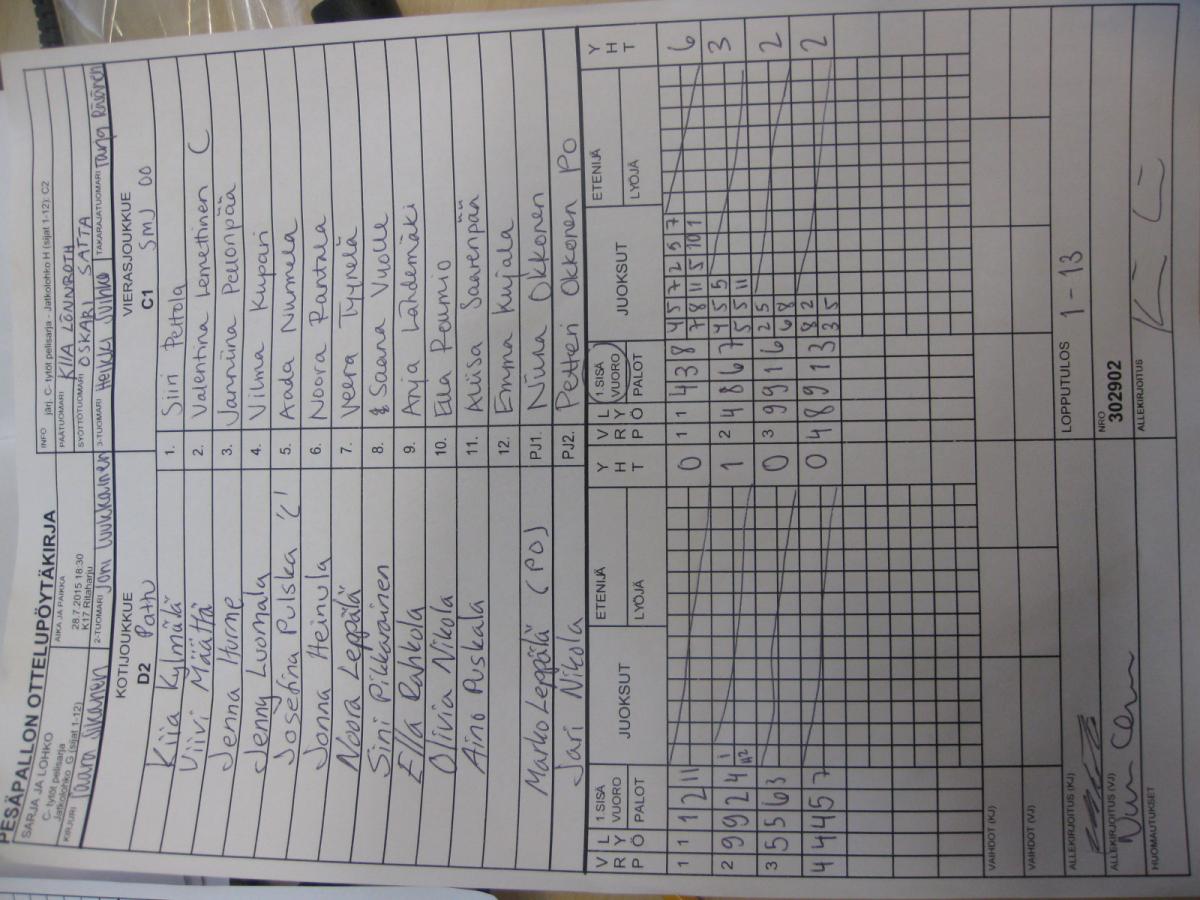 PESÄPALLON OTTELUPÖYTÄKIRJA
SARJA JA LOHKO
C- tytöt pelisarja
Jatkolohko G (sijat 1-12)
AIKA JA PAIKKA
28.7.2015 18:30
K17 Ritaharju
INFO järj. C- tytöt pelisarja - Jatkolohko H (sijat 1-12): C2
PÄÄTUOMARI KIIA LÖNNROTH
SYÖTTÖTUOMARI OSKARI SATTA
KIRJURI
2-TUOMARI Joni Luukkainen
3-TUOMARI Heikki Juhka
TAKARAJATUOMARI Tarja
KOTIJOUKKUE
D2 Pattu
VIERASJOUKKUE
C1 SMJ 00
Kiia Kylmälä 1. Siiri Peltola
Viivi Määttä 2. Valentina Lemettinen C
Jenna Hurme 3. Janniina Pellonpää
Jenny Luomala 4. Vilma Kupari
Josefina Pulska C 5. Aada Nummela
Jonna Heinula 6. Noora Rantala
Noora Leppälä 7. Veera Tyynelä
Sini Pikkarainen 8. Saana Vuolle
Ella Rahkola 9. Anja Lähdemäki
Olivia Nikola 10. Ella Raumio
Aino Puskala 11. Aliisa Saarenpää
12. Emma Kujala
Marko Leppälä (PO) PJ1. Niina Okkonen
Jari Nikola PJ2. Petteri Okkonen PO
VRP LYÖ 1.SISÄ VUORO PALOT JUOKSUT ETENIJÄ LYÖJÄ YHT VRP LYÖ 1.SISÄ VUORO PALOT JUOKSUT ETENIJÄ LYÖJÄ YHT
1 1 1 2 11 0 1 1 4 3 8 4 5 7 2 5 7 6
7 8 11 5 10 1
2 9 9 2 4 1 1 2 4 8 6 7 4 5 5 3
5 5 11
3 5 5 6 3 0 3 9 9 1 6 2 5 2
6 8
4 4 4 5 7 0 4 8 9 1 3 8 2 2
3 5
VAIHDOT (KJ)
VAIHDOT (VJ)
LOPPUTULOS 1 - 13
ALLEKIRJOITUS (KJ)
NRO
302902
ALLEKIRJOITUS (VJ)
ALLEKIRJOITUS
HUOMAUTUKSET